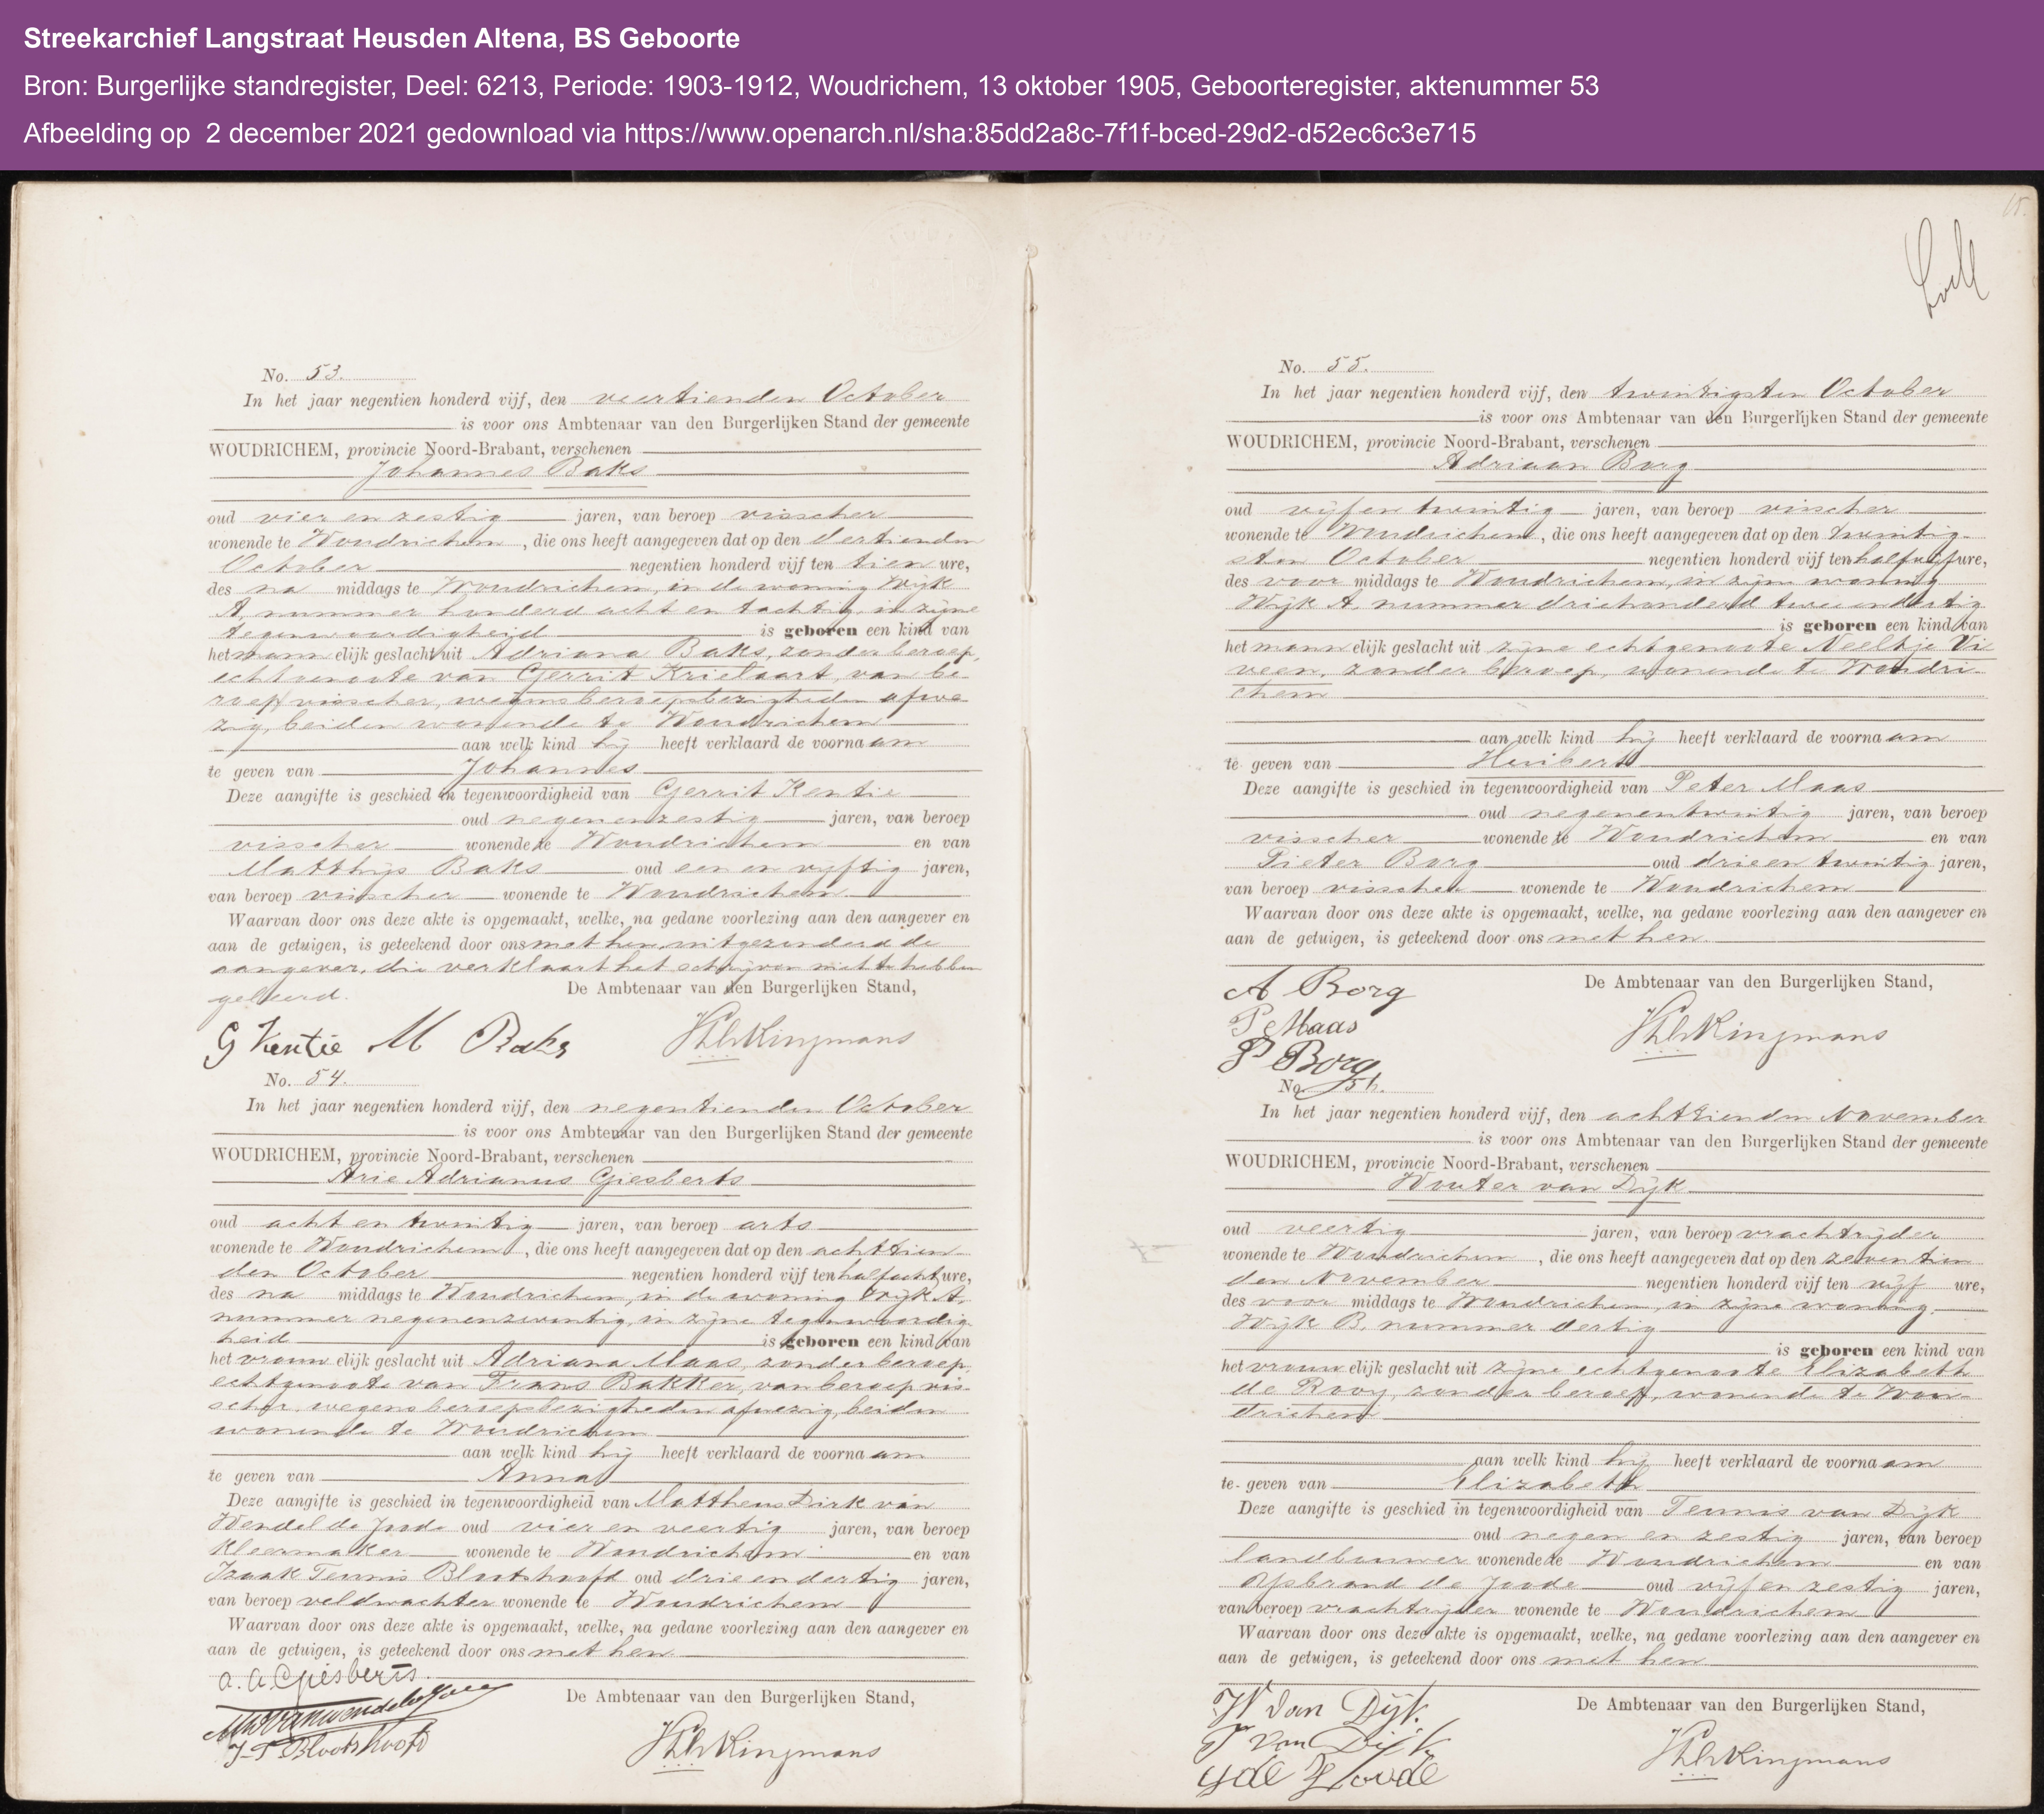 Streekarchief Langstraat Heusden Altena, BS Geboorte
Bron: Burgerlijke standregister, Deel: 6213, Periode: 1903-1912, Woudrichem, 13 oktober 1905, Geboorteregister, aktenummer 53
Afbeelding op 2 december 2021 gedownload via https://www.openarch.nl/sha:85dd2a8c-7f1f-bced-29d2-d52ec6c3e715
No. 53.
In het jaar negentien honderd vijf, den veertienden October
is voor ons Ambtenaar van den Burgerlijken Stand der gemeente
WOUDRICHEM, provincie Noord-Brabant, verschenen
Johannes Baks
oud vier en zestig jaren, van beroep visscher
wonende te Woudrichem, die ons heeft aangegeven dat op den dertienden
October negentien honderd vijf ten tien ure,
des na middags te Woudrichem, in de woning Wijk
A, nummer honderd acht en tachtig, in zijne
tegenwoordigheid is geboren een kind van
het mannelijk geslacht uit Adriana Baks, zonder beroep,
echtgenoote van Gerrit Krielaart, van be-
roep visscher, wegens beroepsbezigheden afwe-
zig, beiden wonende te Woudrichem
aan welk kind hij heeft verklaard de voornaam
te geven van Johannes
Deze aangifte is geschied in tegenwoordigheid van Gerrit Kentie
oud negenenzestig jaren, van beroep
visscher wonende te Woudrichem en van
Matthijs Baks oud een en vijftig jaren,
van beroep visscher wonende te Woudrichem.
Waarvan door ons deze akte is opgemaakt, welke, na gedane voorlezing aan den aangever en
aan de getuigen, is geteekend door ons met hen, uitgezonderd de
aangever, die verklaart het schrijven niet te hebben
geleerd.
De Ambtenaar van den Burgerlijken Stand,
G Kentie M Baks
No. 54.
In het jaar negentien honderd vijf, den negentienden October
is voor ons Ambtenaar van den Burgerlijken Stand der gemeente
WOUDRICHEM, provincie Noord-Brabant, verschenen
Arie Adrianus Giesberts
oud acht en twintig jaren, van beroep arts
wonende te Woudrichem, die ons heeft aangegeven dat op den achttien-
den October negentien honderd vijf ten half acht ure,
des na middags te Woudrichem, in de woning Wijk A,
nummer negenenzeventig, in zijne tegenwoordig-
heid is geboren een kind van
het vrouwelijk geslacht uit Adriana Maas, zonder beroep,
echtgenoote van Frans Bakker, van beroep vis-
scher, wegens beroepsbezigheden afwezig, beiden
wonende te Woudrichem
aan welk kind hij heeft verklaard de voornaam
te geven van Anna
Deze aangifte is geschied in tegenwoordigheid van Mattheus Dirk van
Wendel de Joode oud vier en veertig jaren, van beroep
kleermaker wonende te Woudrichem en van
Izaak Teunis Blootshoofd oud drie en dertig jaren,
van beroep veldwachter wonende te Woudrichem
Waarvan door ons deze akte is opgemaakt, welke, na gedane voorlezing aan den aangever en
aan de getuigen, is geteekend door ons met hen
a. a. Giesberts.
De Ambtenaar van den Burgerlijken Stand,
I. T Blootshoofd
No. 55.
In het jaar negentien honderd vijf, den twintigsten October
is voor ons Ambtenaar van den Burgerlijken Stand der gemeente
WOUDRICHEM, provincie Noord-Brabant, verschenen
Adriaan Borg
oud vijf en twintig jaren, van beroep visscher
wonende te Woudrichem, die ons heeft aangegeven dat op den twintig-
sten October negentien honderd vijf ten half vijf ure,
des voor middags te Woudrichem, in zijne woning
Wijk A, nummer driehonderd twee en dertig
is geboren een kind van
het mannelijk geslacht uit zijne echtgenoote Neeltje Vi-
veen, zonder beroep, wonende te Woudri-
chem
aan welk kind hij heeft verklaard de voornaam
te geven van Huibert
Deze aangifte is geschied in tegenwoordigheid van Peter Maas
oud negenentwintig jaren, van beroep
visscher wonende te Woudrichem en van
Pieter Borg oud drie en twintig jaren,
van beroep visscher wonende te Woudrichem
Waarvan door ons deze akte is opgemaakt, welke, na gedane voorlezing aan den aangever en
aan de getuigen, is geteekend door ons met hen.
De Ambtenaar van den Burgerlijken Stand,
A Borg
P Maas
P Borg
No. 56.
In het jaar negentien honderd vijf, den achttienden November
is voor ons Ambtenaar van den Burgerlijken Stand der gemeente
WOUDRICHEM, provincie Noord-Brabant, verschenen
Wouter van Dijk
oud veertig jaren, van beroep vrachtrijder
wonende te Woudrichem, die ons heeft aangegeven dat op den zeventien-
den November negentien honderd vijf ten vijf ure,
des voor middags te Woudrichem, in zijne woning,
Wijk B, nummer dertig
is geboren een kind van
het vrouwelijk geslacht uit zijne echtgenoote Elizabeth
de Rooy, zonder beroep, wonende te Wou-
drichem
aan welk kind hij heeft verklaard de voornaam
te geven van Elizabeth
Deze aangifte is geschied in tegenwoordigheid van Teunis van Dijk
oud negen en zestig jaren, van beroep
landbouwer wonende te Woudrichem en van
IJsbrand de Joode oud vijf en zestig jaren,
van beroep vrachtrijder wonende te Woudrichem
Waarvan door ons deze akte is opgemaakt, welke, na gedane voorlezing aan den aangever en
aan de getuigen, is geteekend door ons met hen
De Ambtenaar van den Burgerlijken Stand,
W van Dijk.
T van Dijk